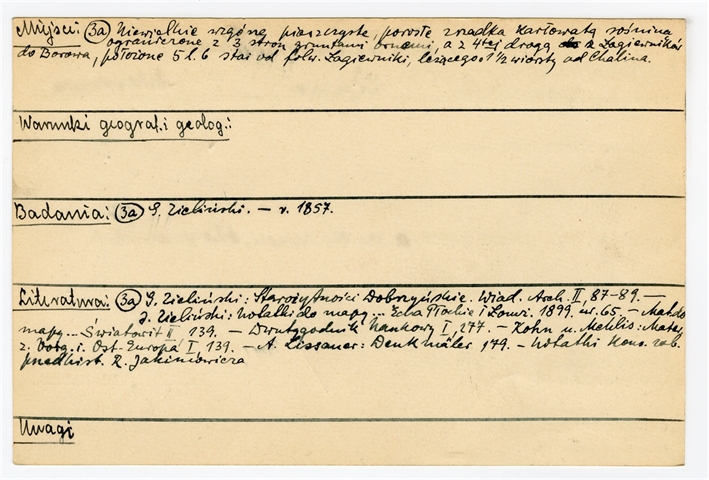 Miejsc.: (3a) Niewielkie wzgórze piaszczyste, porosłe zrzadka karłowatą rośliną
ograniczone z 3 stron gruntami ornemi, a z 4tej drogą z Łagiewnik
do Borowa, położone 5 l. 6 staj od folw. Łagiewniki, leżącego 1 1/2 wiorsty od Chalina.
Warunki geograf. i geolog.:
Badania: (3a) G. Zieliński. — r. 1857.
Literatura: (3a) G. Zieliński: Starożytności Dobrzyńskie. Wiad. Arch. II, 87-89. —
J. Zieliński: Notatki do mapy... Echa Płockie i Łomż. 1899. nr. 65. — Mat. do
mapy... Światowit II 139. — Dwutygodnik Naukowy I, 177. — Kohn u. Mehlis: Mater.
z. Vorg. i. Ost. Europa I, 139. — A. Lissauer: Denkmäler 179. — Notatki kons. zab.
przedhist. R. Jakimowicza
Uwagi